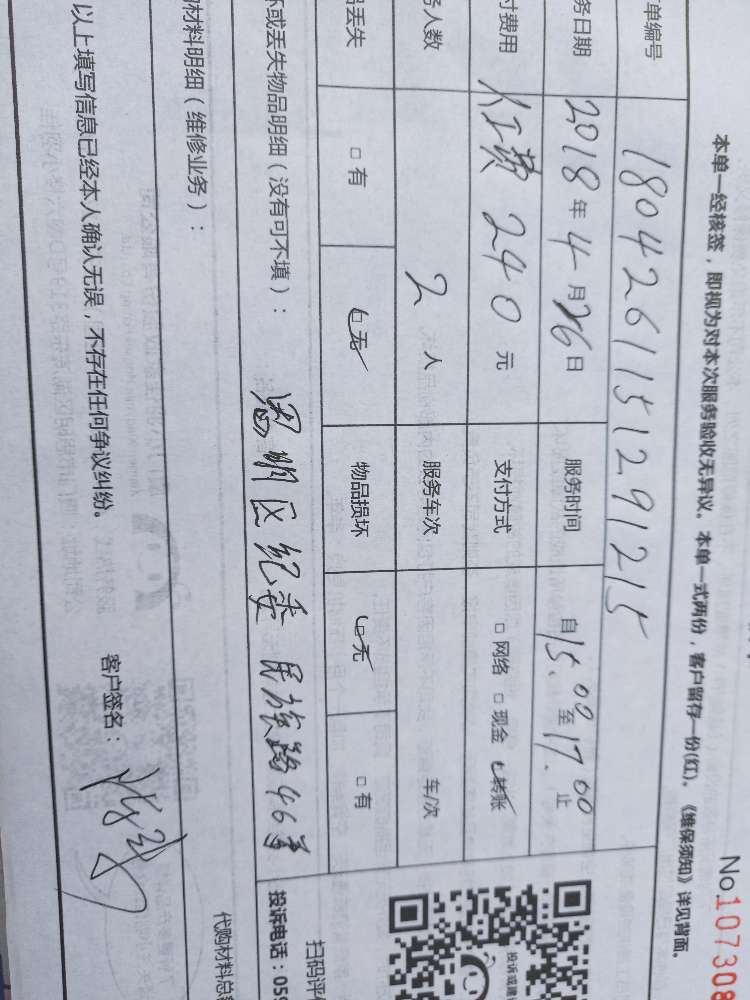 No.107308
本单一经核签，即视为对本次服务验收无异议。本单一式两份，客户留存一份(红)。《维保须知》详见背面。
单编号 1804261151291215
务日期 2018年4月26日 服务时间 自15:00至17:00止
付费用 人工费 240元 支付方式 □网络 □现金 □转账
务人数 2人 服务车次 车/次
品丢失 □有 □无 物品损坏 □无 □有
坏或丢失物品明细（没有可不填）：
思明区纪委 民族路46号
材料明细（维修业务）：
以上填写信息已经本人确认无误，不存在任何争议纠纷。 客户签名：
投诉或建
扫码评
投诉电话：059
代购材料总